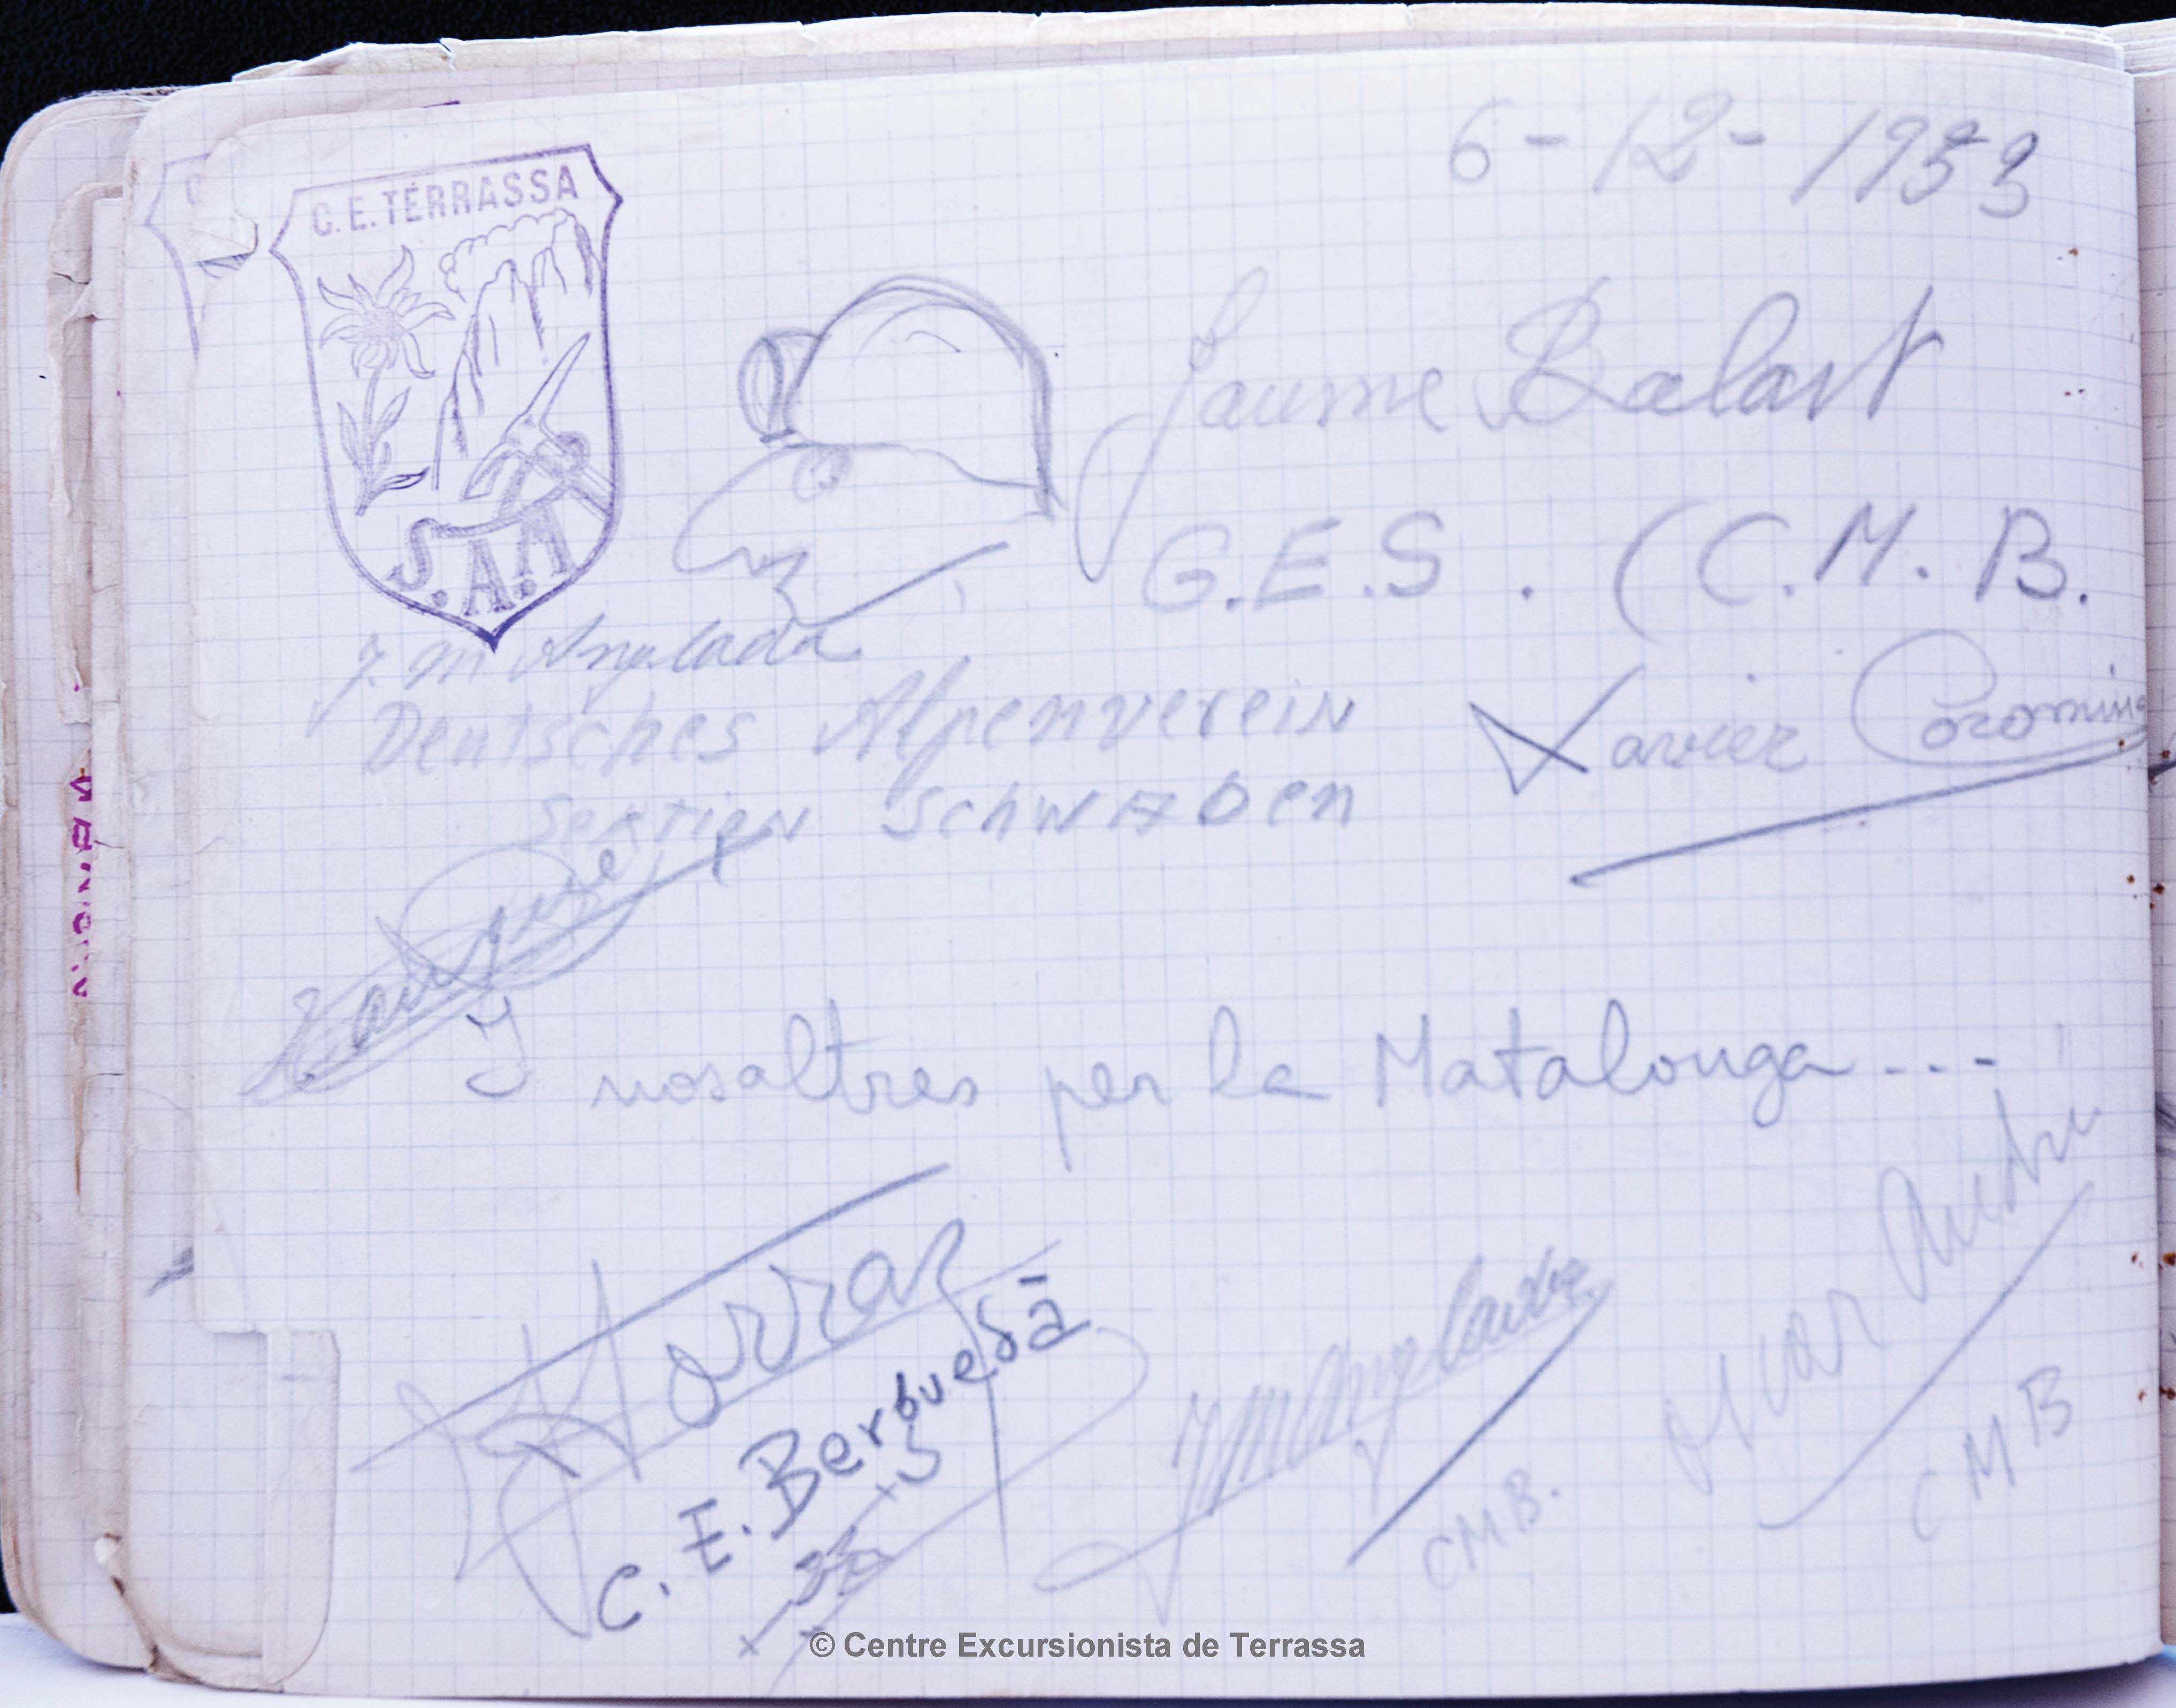 6-12-1953
C.E. TERRASSA
S.A.A
Jaume Balart
G.E.S. (C.M.B.
J.M Anglada
Deutsches Alpenverein
Sektion Schwaben
Xavier Coromina
I nosaltres per la Matalonga...
C.E. Berguedà
JM Anglada
CMB.
CMB
© Centre Excursionista de Terrassa